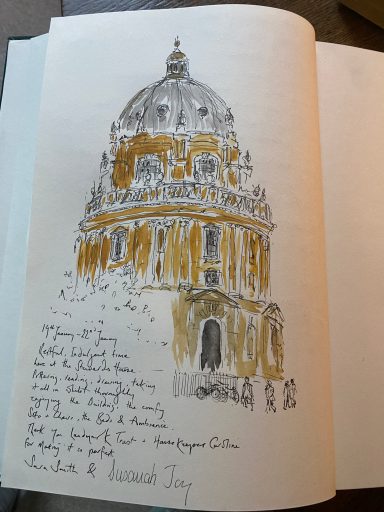 19th January - 22nd January
Restful, Indulgent time
here at the Steward's House.
Relaxing, reading, drawing, taking
it all in whilst thoroughly
enjoying the Building, the comfy
Sofa & Chairs, the Beds & Ambience.
Thank you Landmark Trust & Housekeeper Caroline
for Making it so perfect
Sara Smith & Susannah Joy